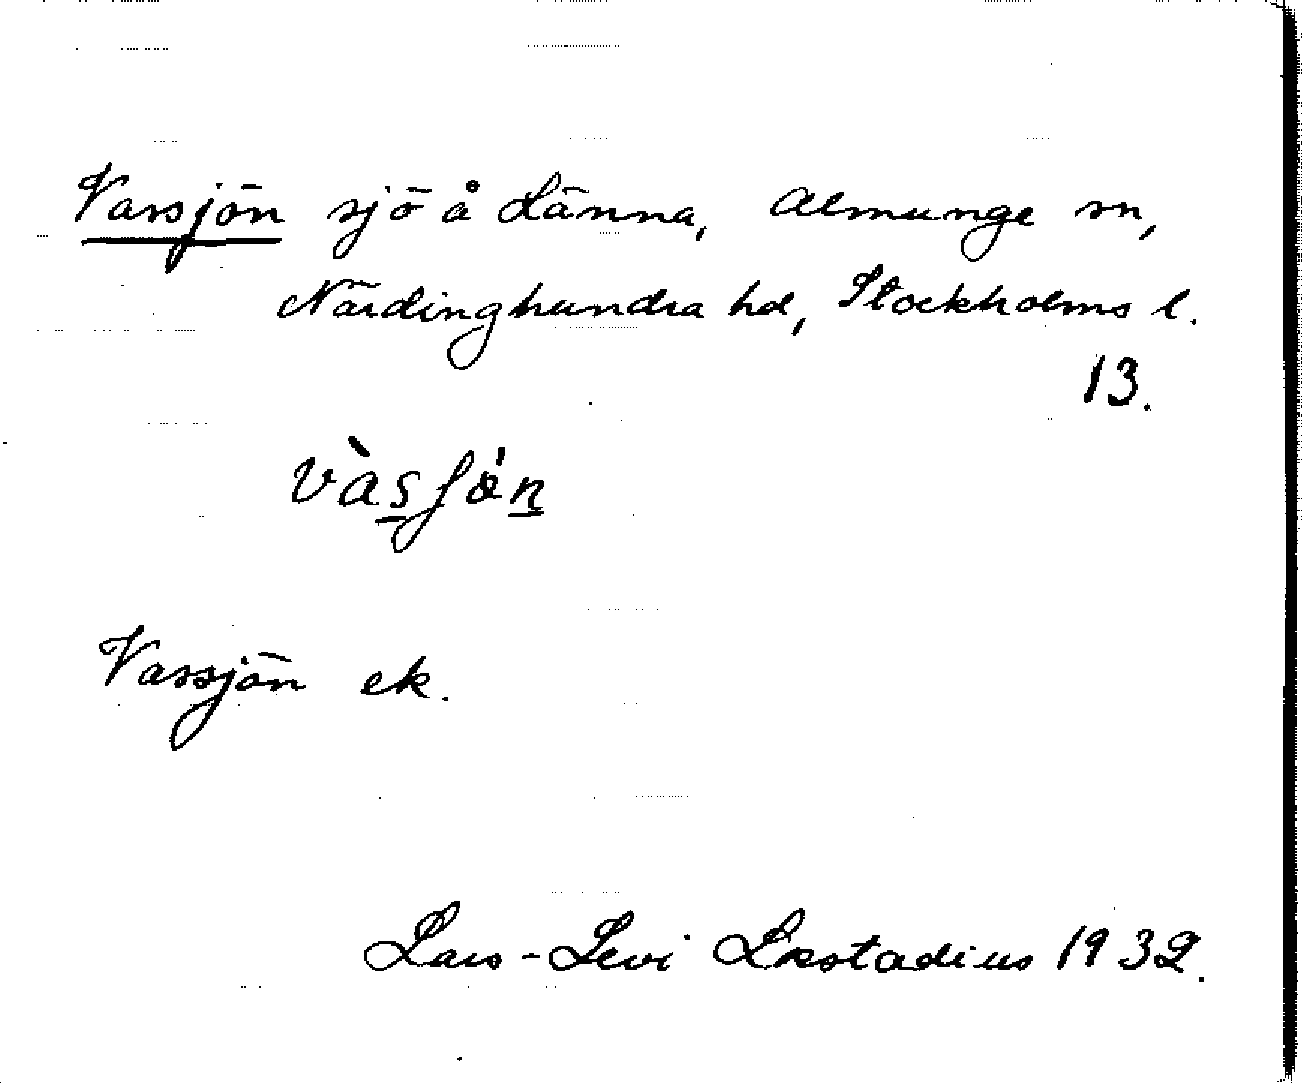 Varsjön sjö å Länna, Almunge sn,
Närdinghundra hd, Stockholms l.
13.
Varssjön ek.
Lars-Levi Læstadius 1932.